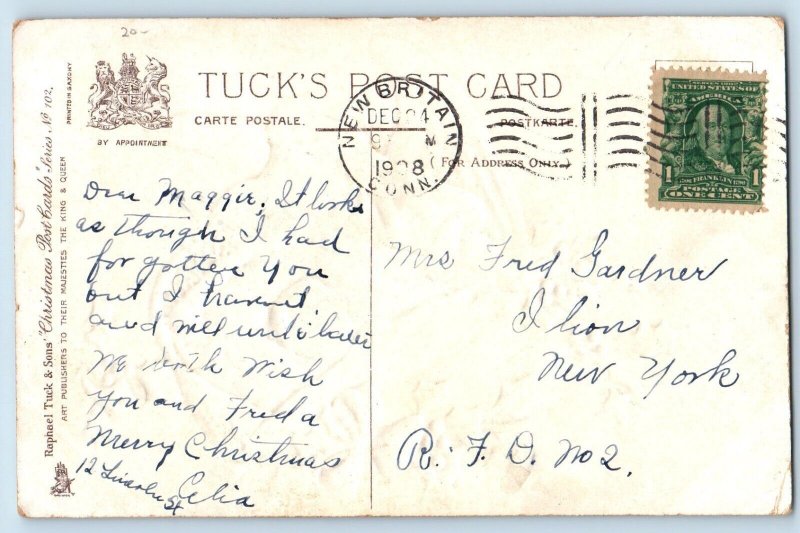 20-
TUCK'S POST CARD
CARTE POSTALE.
POSTKARTE.
(FOR ADDRESS ONLY.)
BY APPOINTMENT
PRINTED IN SAXONY
Raphael Tuck & Sons' "Christmas Post Cards" Series No 102.
ART PUBLISHERS TO THEIR MAJESTIES THE KING & QUEEN
NEW BRITAIN
DEC 24
9 M
1908
CONN.
UNITED STATES OF
AMERICA
FRANKLIN
1 POSTAGE 1
ONE CENT
Dear Maggie, It looks
as though I had
forgotten you
but I havent
and will write later
We both Wish
You and Freda
Merry Christmas
Celia
12 Lincoln St
Mrs Fred Gardner
Ilion
New York
R. F. D. No 2.